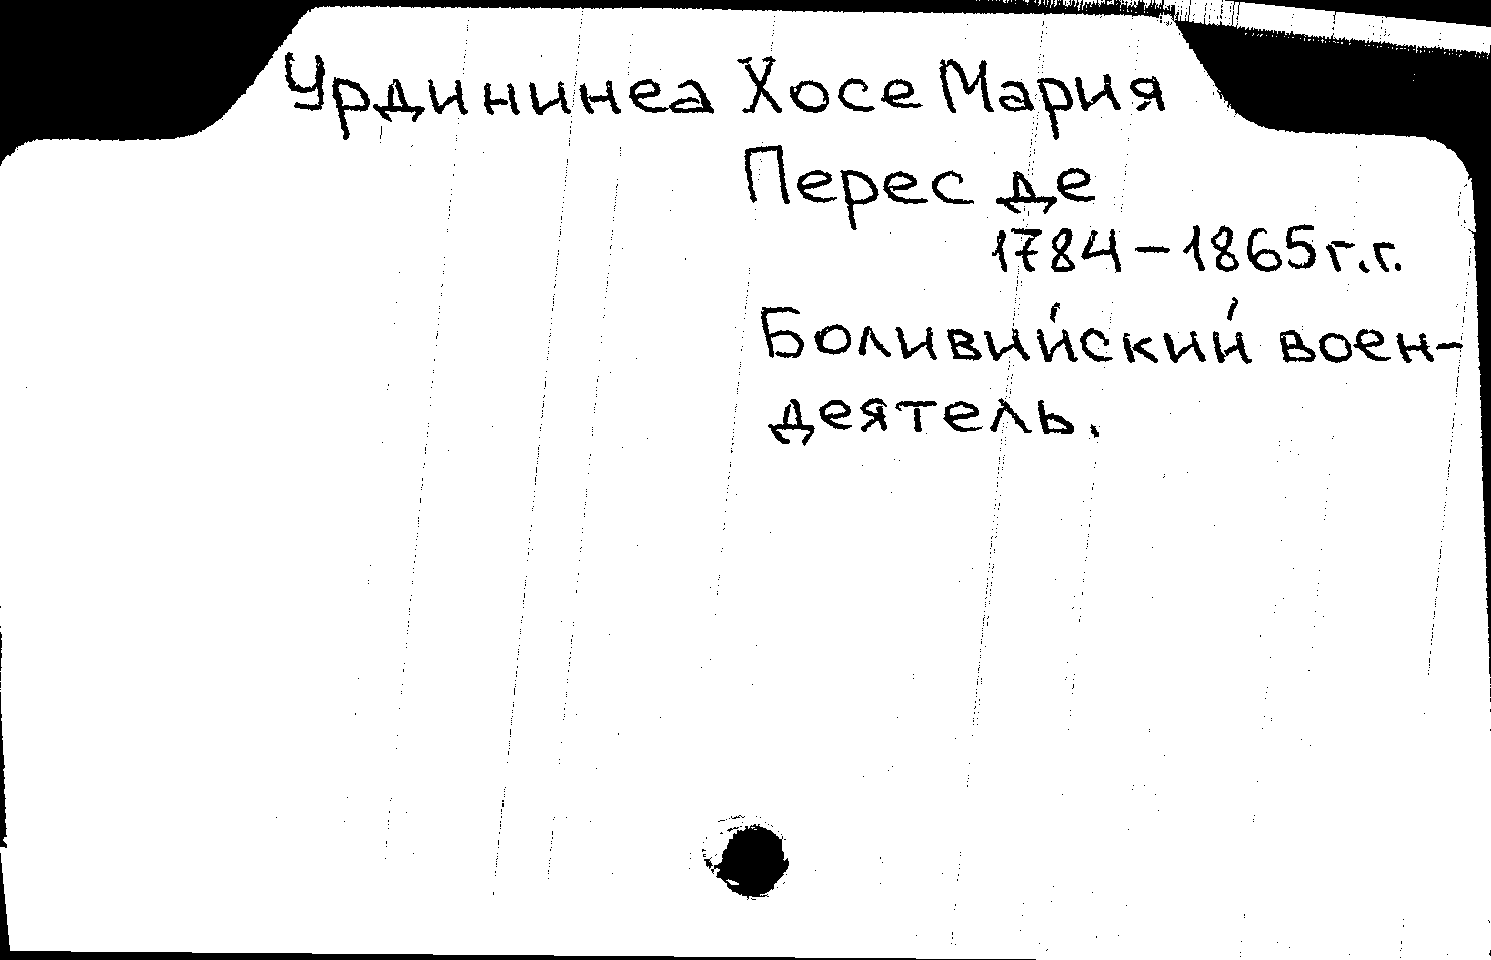 Урдининеа Хосе Мария
Перес де
1784-1865г.г.
Боливийский воен-
деятель.